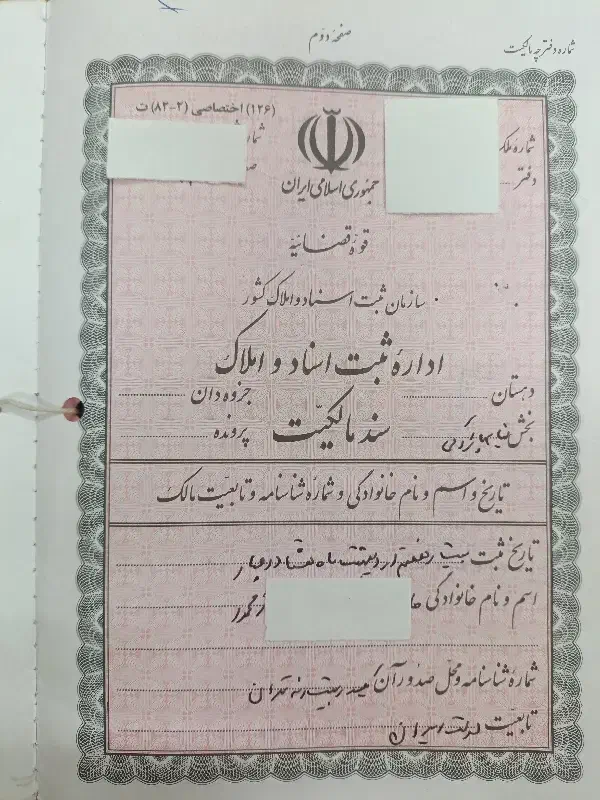 صفحهٔ دوم
شماره دفترچه مالکیت
(۱۲۶) اختصاصی (۲-۸۲) ت
شماره ملک
دفتر
جمهوری اسلامی ایران
قوهٔ قضائیه
سازمان ثبت اسناد و املاک کشور
ادارهٔ ثبت اسناد و املاک
دهستان
جزوه دان
بخش
سند مالکیت
پرونده
تاریخ و اسم و نام خانوادگی و شمارهٔ شناسنامه و تابعیت مالک
تاریخ ثبت بیست و هفتم اردیبهشت ماه هشتاد و چهار
اسم و نام خانوادگی
شمارهٔ شناسنامه و محل صدور آن تهران
تابعیت دولت ایران